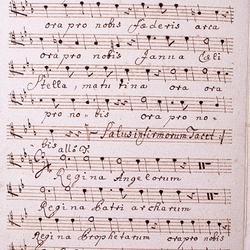 ora pro nobis fœderis arca
ora pro nobis Janna Cæli
Stella, matu tina ora ora
pro no- bis ora pro no-
Salus infirmorum Tacet
bis all⁰
Regina Angelorum
Regina Patri archarum
Regina Prophetarum ora pro nobis